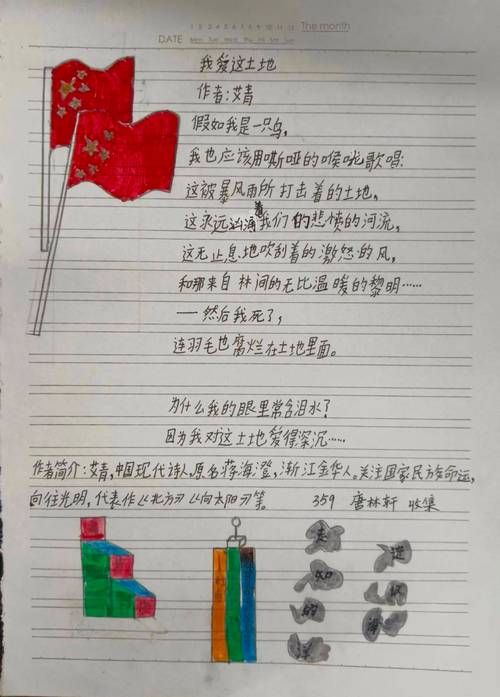 1 2 3 4 5 6 7 8 9 10 11 12 The month
DATE Mon Tue Wed Thu Fri Sat Sun
我爱这土地
作者:艾青
假如我是一只鸟,
我也应该用嘶哑的喉咙歌唱:
这被暴风雨所打击着的土地,
这永远汹涌着我们的悲愤的河流,
这无止息地吹刮着的激怒的风,
和那来自林间的无比温暖的黎明……
——然后我死了,
连羽毛也腐烂在土地里面。
为什么我的眼里常含泪水?
因为我对这土地爱得深沉……
作者简介:艾青,中国现代诗人,原名蒋海澄,浙江金华人。关注国家民族命运,
向往光明,代表作《北方》《向太阳》等。 359 唐林轩 收集